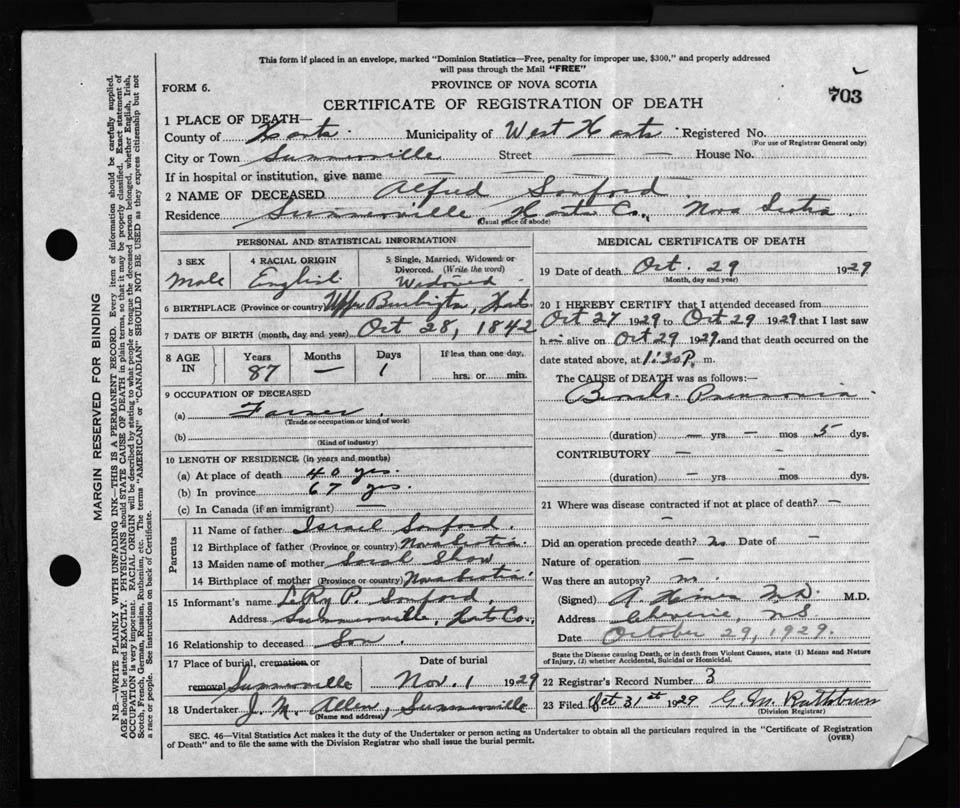 This form if placed in an envelope, marked "Dominion Statistics—Free, penalty for improper use, $300," and properly addressed
will pass through the Mail "FREE"
FORM 6.
PROVINCE OF NOVA SCOTIA
703
CERTIFICATE OF REGISTRATION OF DEATH
1 PLACE OF DEATH—
County of Hants Municipality of West Hants Registered No.
(For use of Registrar General only)
City or Town Summerville Street — — House No.
If in hospital or institution, give name — — — —
2 NAME OF DECEASED Alfred Sanford
Residence Summerville Hants Co., Nova Scotia
(Usual place of abode)
PERSONAL AND STATISTICAL INFORMATION
3 SEX
Male
4 RACIAL ORIGIN
English
5 Single, Married, Widowed or
Divorced. (Write the word)
Widowed
6 BIRTHPLACE (Province or country) Upp Burlington, Hants
7 DATE OF BIRTH (month, day and year) Oct 28, 1842
8 AGE IN
Years Months Days If less than one day,
87 — 1 hrs. or min.
9 OCCUPATION OF DECEASED
(a) Farmer
(Trade or occupation or kind of work)
(b)
(Kind of industry)
10 LENGTH OF RESIDENCE (in years and months)
(a) At place of death 40 yrs.
(b) In province 67 yrs.
(c) In Canada (if an immigrant) —
Parents
11 Name of father Israel Sanford
12 Birthplace of father (Province or country) Nova Scotia
13 Maiden name of mother Sarah Shaw
14 Birthplace of mother (Province or country) Nova Scotia
15 Informant's name LeRoy P. Sanford
Address Summerville, Hants Co.,
16 Relationship to deceased Son
17 Place of burial, cremation or Date of burial
removal Summerville Nov. 1 1929
18 Undertaker J. M. Allen, Summerville
(Name and address)
MEDICAL CERTIFICATE OF DEATH
19 Date of death Oct. 29 1929
(Month, day and year)
20 I HEREBY CERTIFY that I attended deceased from
Oct 27 1929 to Oct 29 1929 that I last saw
h— alive on Oct 29 1929 and that death occurred on the
date stated above, at 1:30 P. m.
The CAUSE of DEATH was as follows:—
Broncho Pneumonia
(duration) — yrs — mos 5 dys.
CONTRIBUTORY — —
(duration) — yrs — mos — dys.
21 Where was disease contracted if not at place of death? —
Did an operation precede death? no Date of —
Nature of operation —
Was there an autopsy? no
(Signed) M.D. M.D.
Address NS
Date October 29, 1929.
State the Disease causing Death, or in death from Violent Causes, state (1) Means and Nature
of Injury, (2) whether Accidental, Suicidal or Homicidal.
22 Registrar's Record Number 3
23 Filed Oct 31st 1929 G. M. Rathbun
(Division Registrar)
SEC. 46—Vital Statistics Act makes it the duty of the Undertaker or person acting as Undertaker to obtain all the particulars required in the "Certificate of Registration
of Death" and to file the same with the Division Registrar who shall issue the burial permit.
(OVER)
MARGIN RESERVED FOR BINDING
N.B.—WRITE PLAINLY WITH UNFADING INK—THIS IS A PERMANENT RECORD. Every item of information should be carefully supplied.
AGE should be stated EXACTLY. PHYSICIANS should STATE CAUSE OF DEATH in plain terms, so that it may be properly classified. Exact statement of
OCCUPATION is very important. RACIAL ORIGIN will be described by stating to what people or tongue the deceased person belonged, whether English, Irish,
Scotch, French, German, Russian, Ruthenian, etc. The terms "AMERICAN" or "CANADIAN" SHOULD NOT BE USED as they express citizenship but not
a race or people. See instructions on back of Certificate.